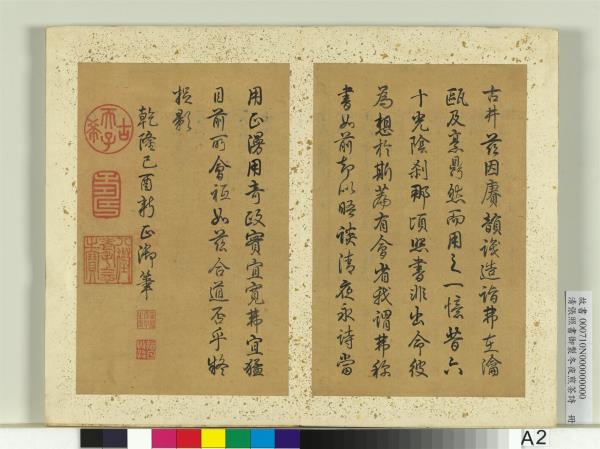 古井茲因賡韻識造詣弗在瀹
甌及烹鼎然而用之一憶昔六
十光陰刹那頃照書非出命彼
為想於斯篇有會省我謂弗称
書如前却以晤談清夜永詩當
用正漫用奇政實宜寬弗宜猛
目前所會祗如茲合道否乎將
捉影
乾隆己酉新正御筆
古稀天子
八徵耄念之寶
故書 000710N000000000
清張照書御製冬夜煎茶詩 冊
A2